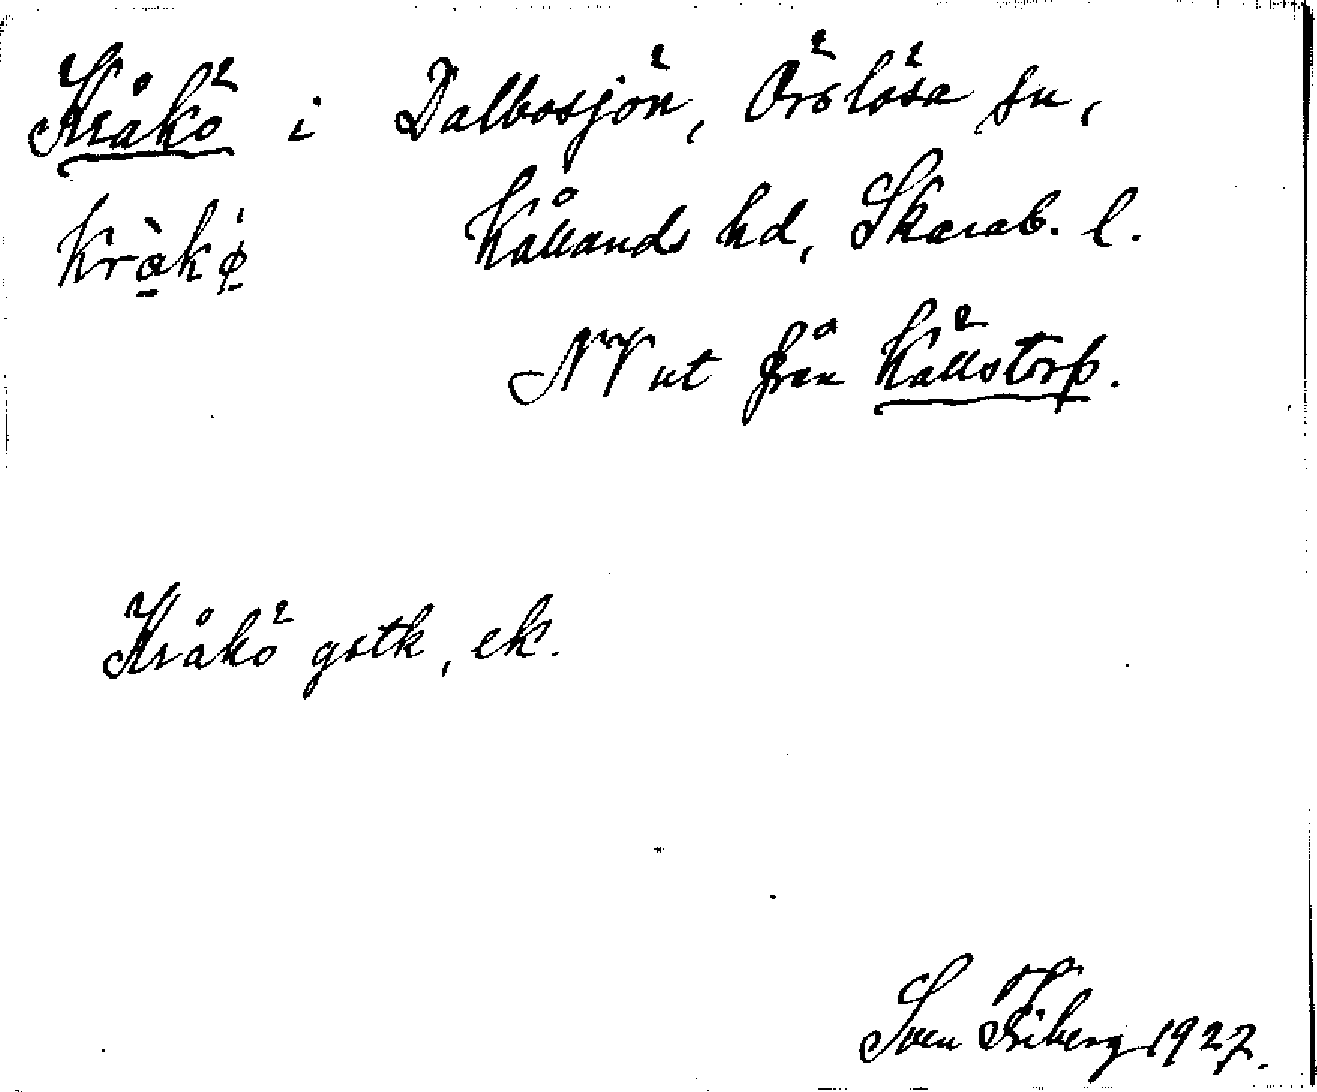 Kråkö i Dalbosjön, Örslösa sn,
kràkø̀ Kållands hd, Skarab. l.
NV ut från Källstorp.
Kråkö gstk, ek.
Sven Friberg 1927.